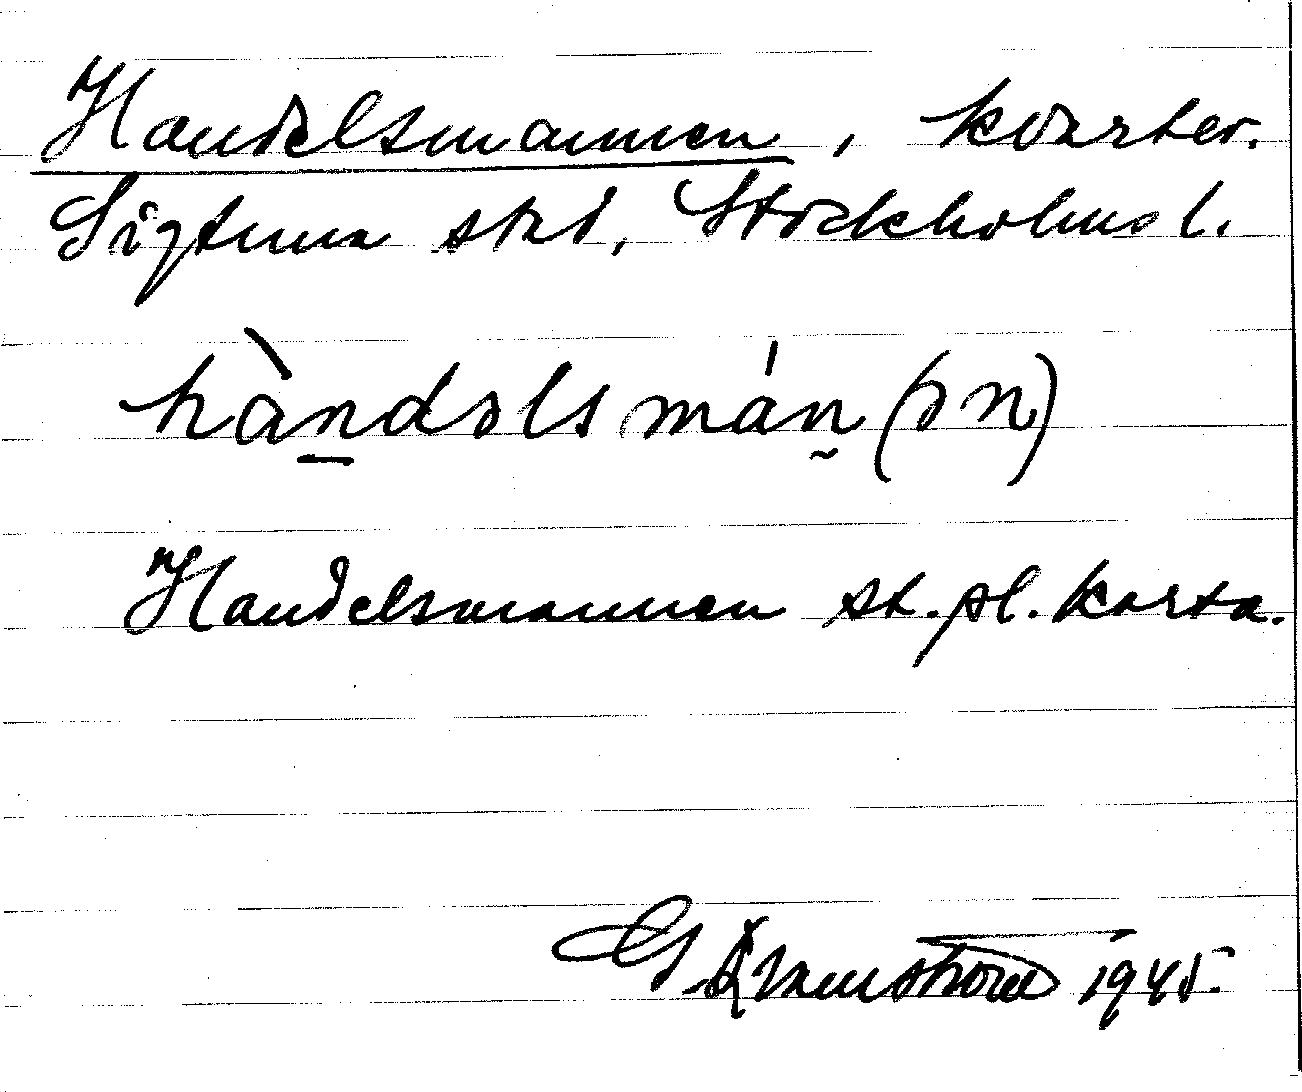 Handelsmannen, kvarter.
Sigtuna std, Stockholms l.
hàndəlsmán(ən)
Handelsmannen st.pl. karta.
1945.